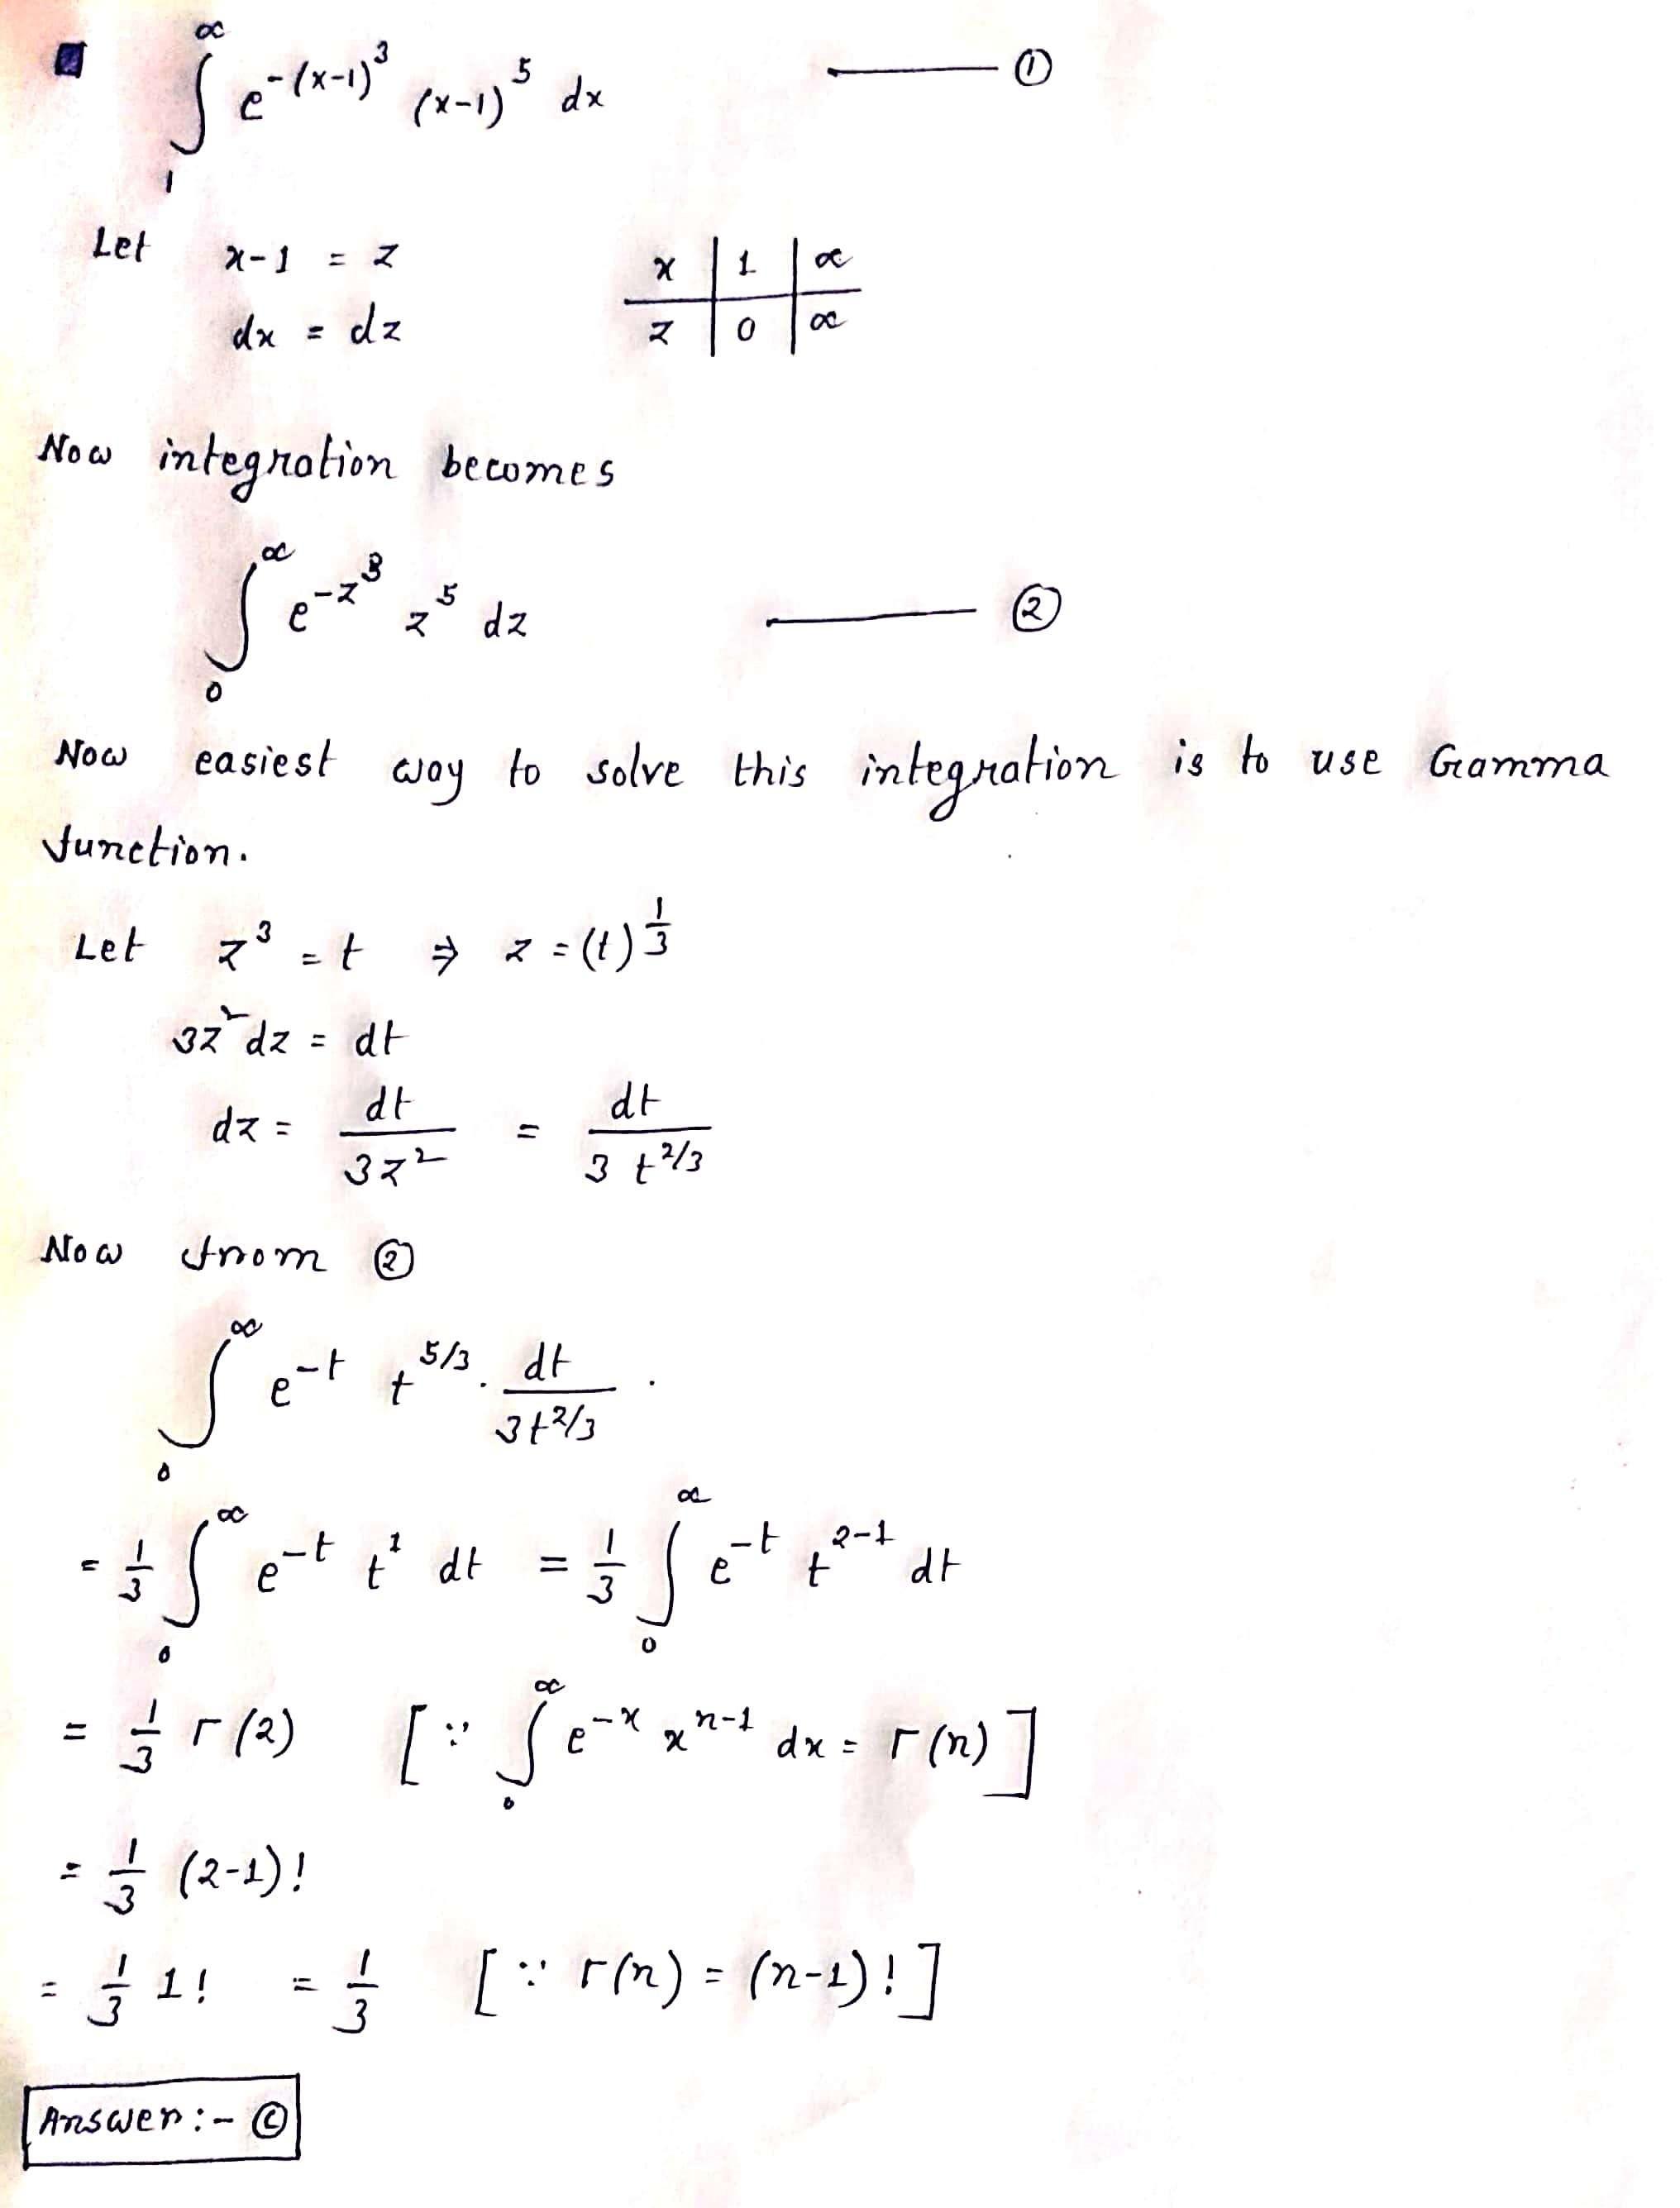 ∫₁^∞ e^{-(x-1)^3} (x-1)^5 dx ——— ①
Let x-1 = z
dx = dz
x | 1 | ∞
z | 0 | ∞
Now integration becomes
∫₀^∞ e^{-z^3} z^5 dz ——— ②
Now easiest way to solve this integration is to use Gamma
function.
Let z^3 = t ⇒ z = (t)^{1/3}
3z^2 dz = dt
dz = dt/(3z^2) = dt/(3 t^{2/3})
Now from ②
∫₀^∞ e^{-t} t^{5/3} · dt/(3t^{2/3}) .
= 1/3 ∫₀^∞ e^{-t} t^1 dt = 1/3 ∫₀^∞ e^{-t} t^{2-1} dt
= 1/3 Γ(2) [∵ ∫₀^∞ e^{-x} x^{n-1} dx = Γ(n)]
= 1/3 (2-1)!
= 1/3 1! = 1/3 [∵ Γ(n) = (n-1)!]
Answer:- ©